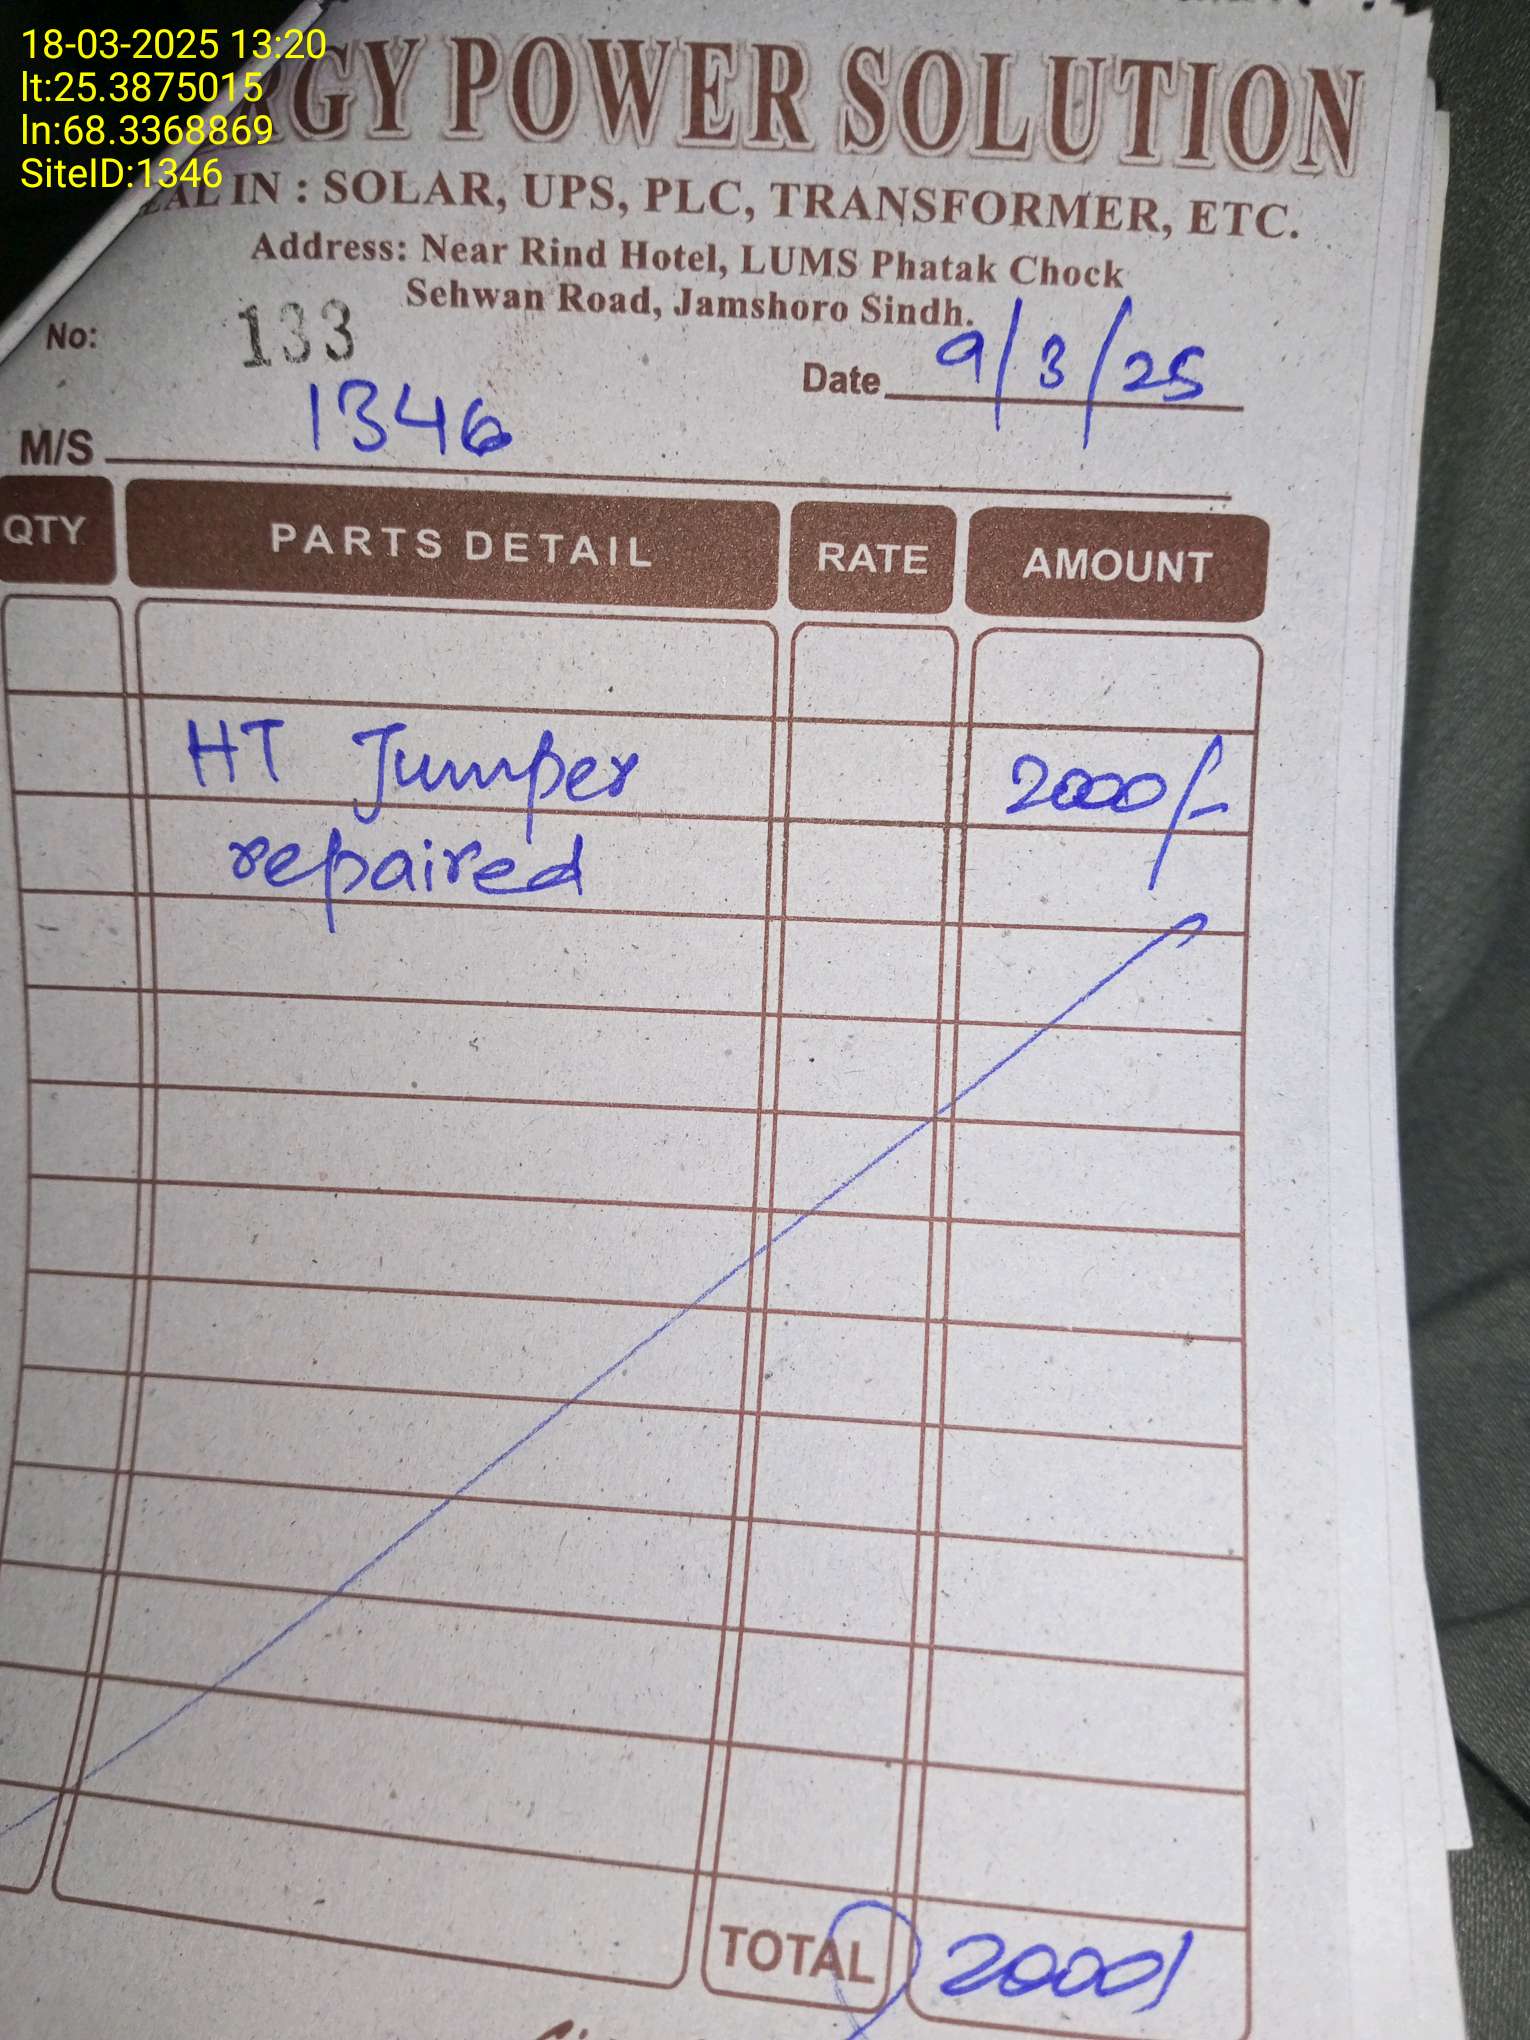 18-03-2025 13:20
lt:25.3875015
ln:68.3368869
SiteID:1346
RGY POWER SOLUTION
EAL IN : SOLAR, UPS, PLC, TRANSFORMER, ETC.
Address: Near Rind Hotel, LUMS Phatak Chock
Sehwan Road, Jamshoro Sindh.
No: 133
Date 9/3/25
M/S 1346
QTY PARTS DETAIL RATE AMOUNT
HT Jumper 2000/-
repaired
TOTAL 2000/